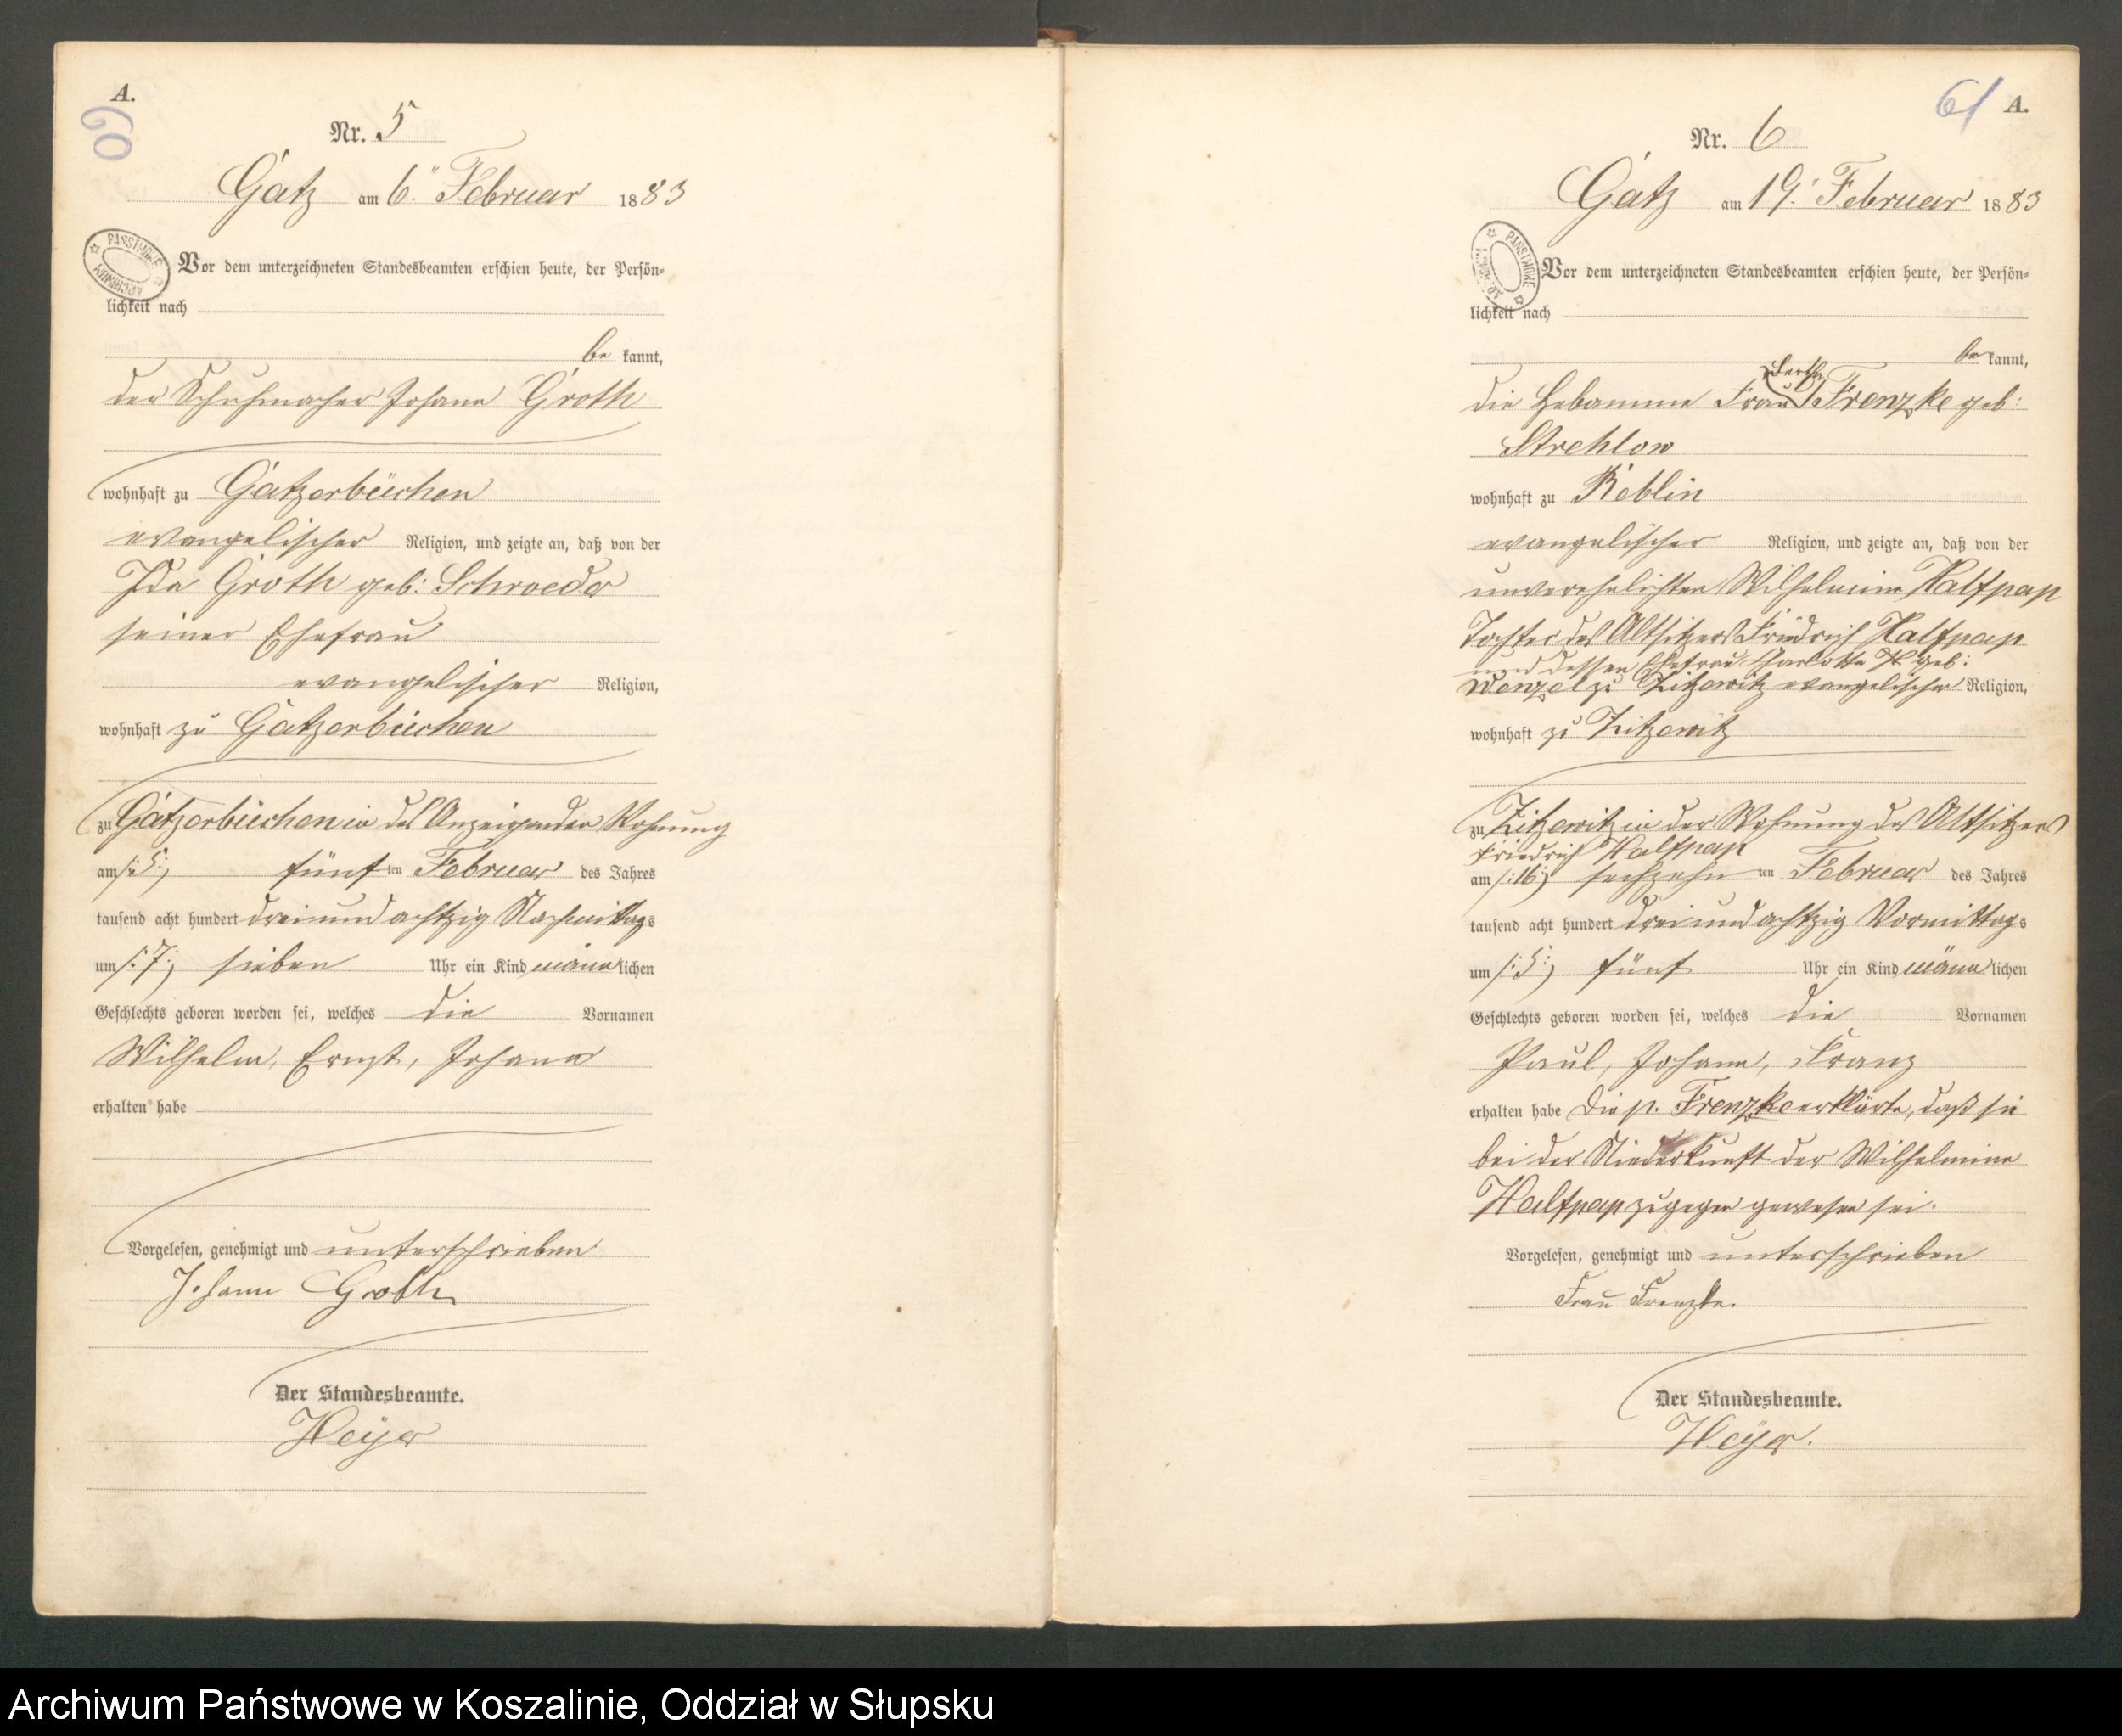 A.
60
Nr. 5
Gatz am 6. Februar 1883
Vor dem unterzeichneten Standesbeamten erschien heute, der Persön-
lichkeit nach
be kannt,
der Schuhmacher Johann Groth
wohnhaft zu Gatzerbüchen
evangelischer Religion, und zeigte an, daß von der
Ida Groth geb: Schroeder
seiner Ehefrau
evangelischer Religion,
wohnhaft zu Gatzerbüchen
zu Gatzerbüchen in des Anzeigenden Wohnung
am /:5:/ fünf ten Februar des Jahres
tausend acht hundert drei und achtzig Nachmittags
um /:7:/ sieben Uhr ein Kind männlichen
Geschlechts geboren worden sei, welches die Vornamen
Wilhelm, Ernst, Johann
erhalten habe
Vorgelesen, genehmigt und unterschrieben
Johann Groth
Der Standesbeamte.
Heyer
61 A.
Nr. 6
Gatz am 19. Februar 1883
PAŃSTWOWE ARCHIWUM
Vor dem unterzeichneten Standesbeamten erschien heute, der Persön-
lichkeit nach
be kannt,
die Hebamme Frau Bertha Frenzke geb:
Strehlow
wohnhaft zu Reblin
evangelischer Religion, und zeigte an, daß von der
unverehelichten Wilhelmine Halfpap
Tochter des Altsitzers Friedrich Halfpap
und dessen Ehefrau Charlotte H. geb:
Wenzel zu Zitzewitz evangelischer Religion,
wohnhaft zu Zitzewitz
zu Zitzewitz in der Wohnung des Altsitzers
Friedrich Halfpap
am /:16:/ sechzehn ten Februar des Jahres
tausend acht hundert drei und achtzig Vormittags
um /:5:/ fünf Uhr ein Kind männlichen
Geschlechts geboren worden sei, welches die Vornamen
Paul, Johann, Franz
erhalten habe Die p. Frenzke erklärte, daß sie
bei der Niederkunft der Wilhelmine
Halfpap zugegen gewesen sei.
Vorgelesen, genehmigt und unterschrieben
Frau Frenzke.
Der Standesbeamte.
Heyer.
Archiwum Państwowe w Koszalinie, Oddział w Słupsku